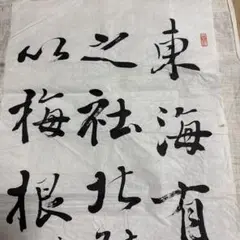 東海有
之社北
以梅根